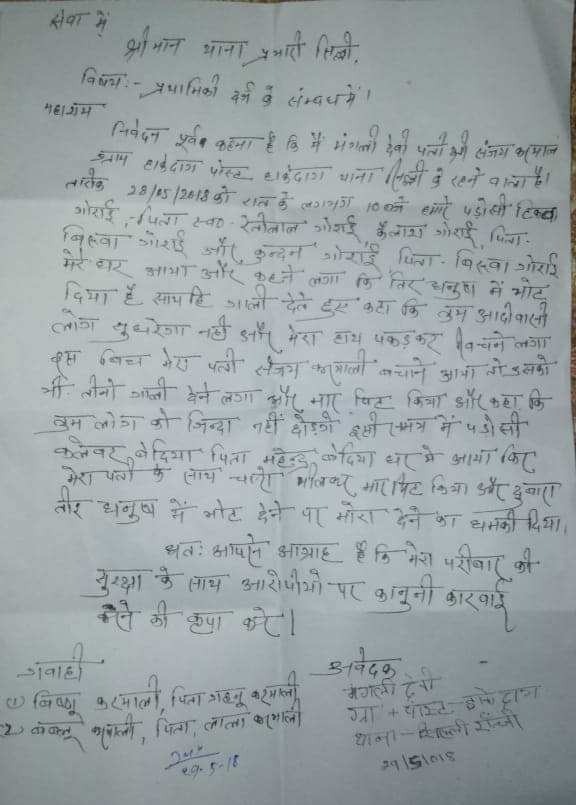 सेवा में
श्रीमान थाना प्रभारी सिल्ली,
विषय:- प्राथमिकी दर्ज के संम्बध में।
महाशय
निवेदन पूर्वक कहना है कि मैं मंगली देवी पत्नी श्री संजय करमाली
ग्राम हाकेदाग पोस्ट हाकेदाग थाना सिल्ली के रहने वाला है।
तारीक 28/05/2018 को रात के लगभग 10 बजे हमारे पड़ोसी
गोराई, पिता स्व०- रतीलाल गोराई कैलाश गोराई, पिता-
बिसवा गोराई और कुन्दन गोराई पिता- बिसवा गोराई
मेरे घर आया और कहने लगा कि तिर धनुष में भोट
दिया है साथ हि गाली देते हुए कहा कि तुम आदीवासी
लोग सुधरेगा नहीं और मेरा हाथ पकड़कर खिचने लगा
इस बिच मेरा पती संजय करमाली बचाने आया तो उसको
भी तीनो गाली देने लगा और मार पिट किया और कहा कि
तुम लोग को जिन्दा नहीं छोड़ेगें इसी में पडोसी
कलेवर बेदिया पिता महेन्द्र बेदिया घर से आया फिर
मेरा पती के साथ चारो मीलकर मारपिट किया और दुबारा
तीर धनुष में भोट देने पर का धमकी दिया।
अत: आपसे आग्रह है कि मेरा परीवार की
सुरक्षा के साथ आरोपीयो पर कानुनी कारवाई
करने की कृपा करे।
गवाही
1) बिष्णु करमाली, पिता करमाली
2) करमाली, पिता, लाला करमाली
29-5-18
आवेदक
मंगली देवी
ग्रा + पोस्ट- हाकेदाग
थाना - सिल्ली राँची
29/5/018